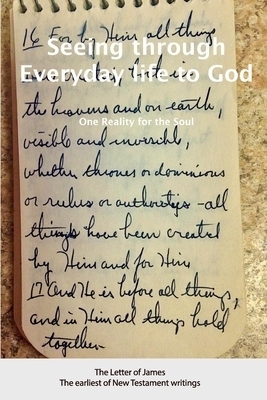 16 For by Him all things
Seeing through
Everyday life to God
the heavens and on earth,
One Reality for the Soul
visible and invisible,
whether thrones or dominions
or rulers or authorities – all
things have been created
by Him and for Him
17 And He is before all things,
and in Him all things hold
together.
The Letter of James
The earliest of New Testament writings